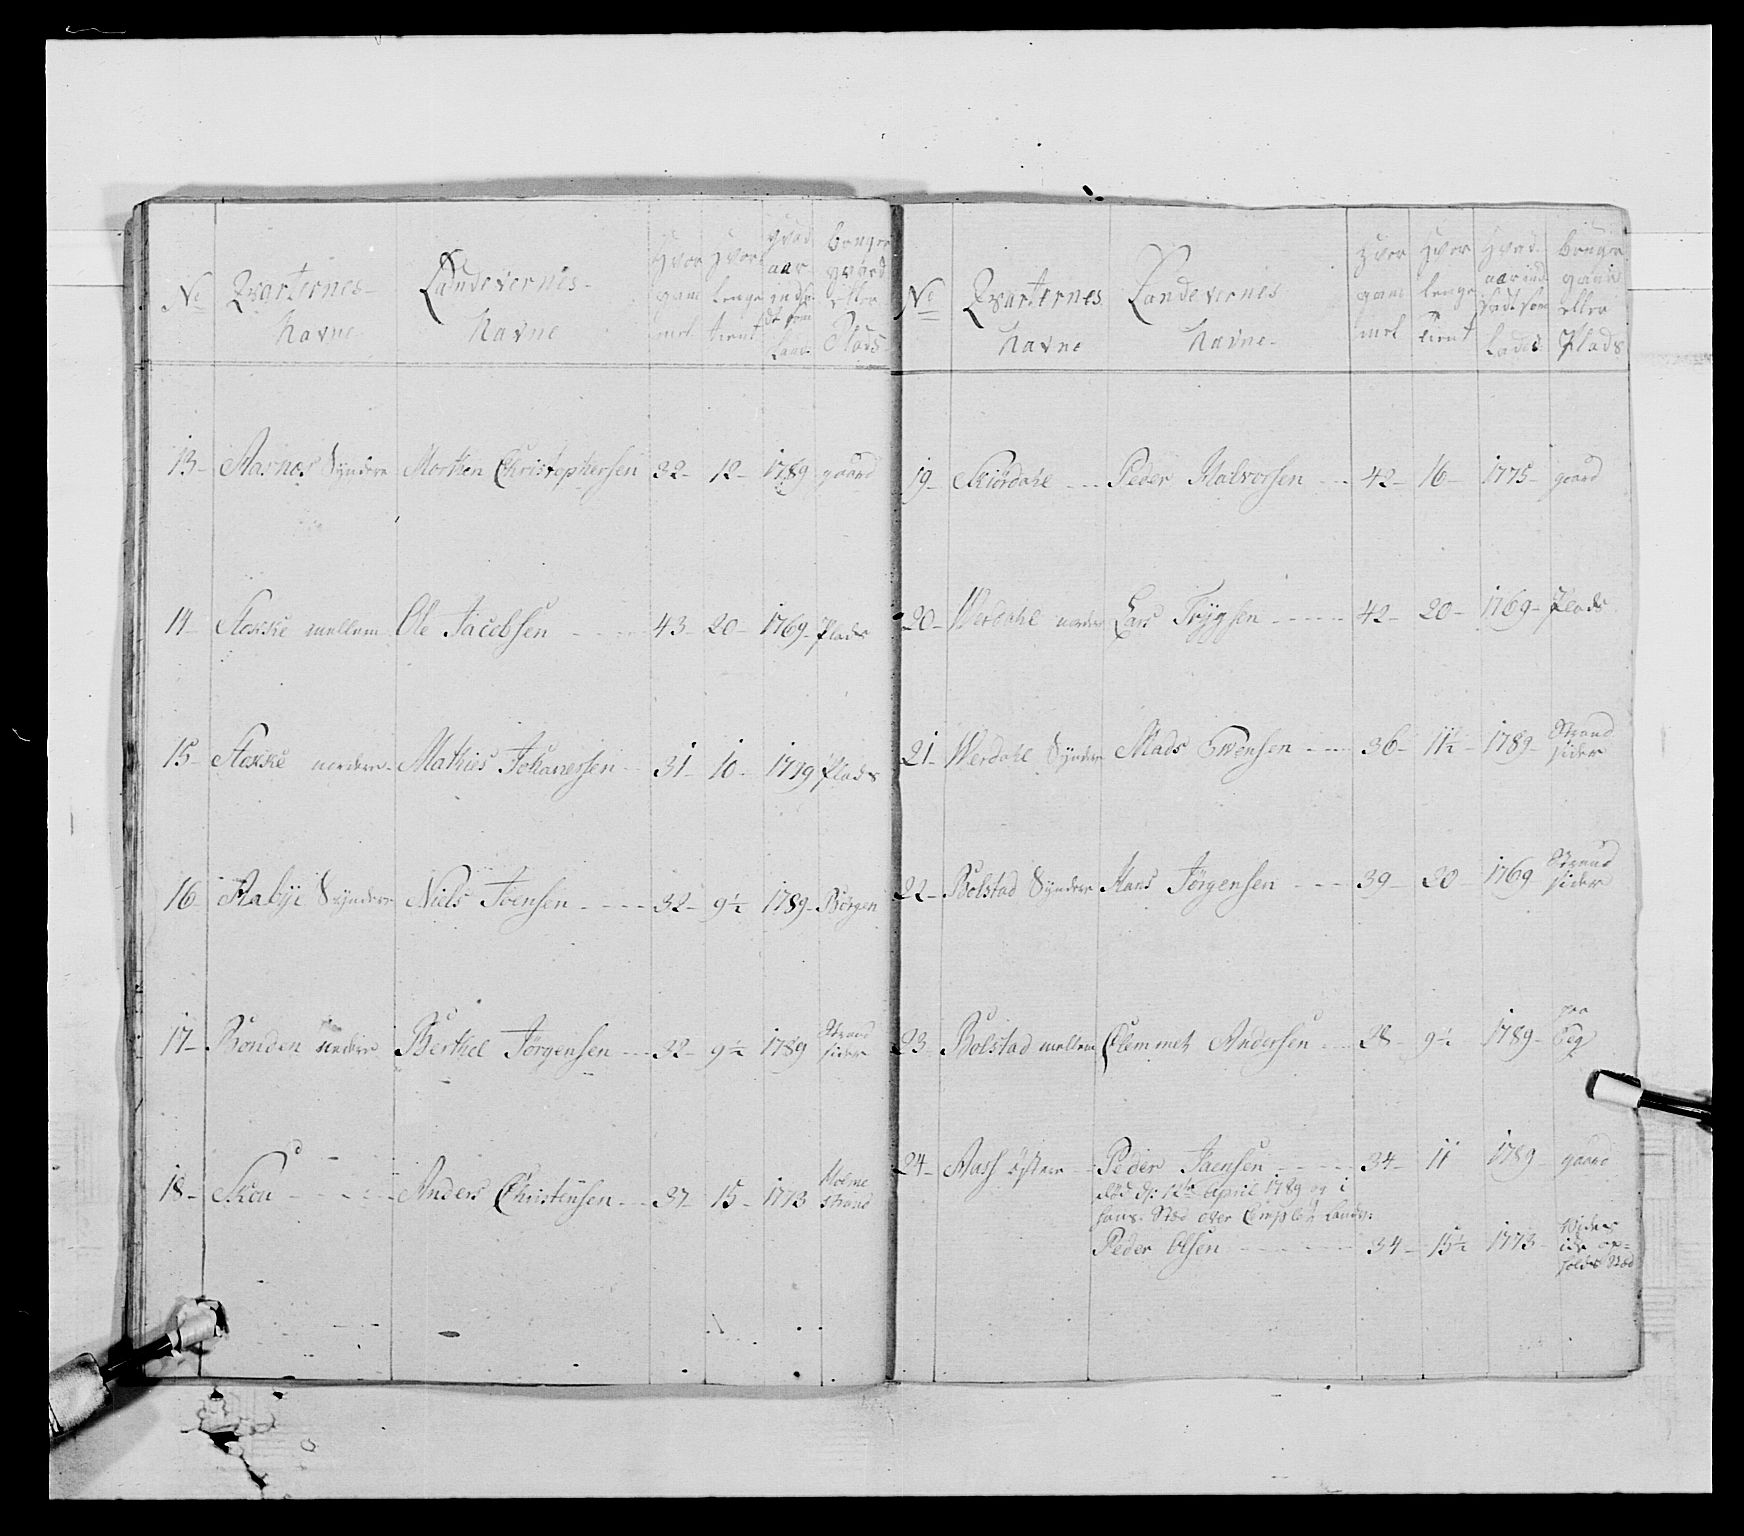 No
Qvarternes
Navne
Landevernes
Navne
Hvor
gam
mel
Hvor
lenge
tient
Hvad
aar
inds
dt som
Land.
bruger
gaard
eller
Plads
13 - Aarnæs Syndere Morthen Christophersen 32 - 12 - 1789 - gaard
14 - Floxske mellem Ole Jacobsen - - - 43 - 20 - 1769 - Plads
15 - Floxske nordere - Mathies Johanessen - 31 - 10 - 1779 Plads
16 - Rabye Syndere Niels Joensen - - - 32 - 9½ 1789 - Børgen
17 - Bonden nedere Berthel Jörgensen - - 32 - 9½ 1789 Strand
sider
18 - Skou - - - - Anders Christensen - - 37 - 15 - 1773 Holme
strand
No
Qvarternes
Navne
Landevernes
Navne
Hvor
gam
mel
Hvor
lenge
tient
Hvad
aar ind
sat som
Lands
bruger
gaard
eller
Plads
19 - Skiördahl - - - Peder Halvorsen - - 42 - 16 - 1775 - gaard
20 - Werdahl nordre Lars Trygsen - - - - 42 - 20 - 1769 - Plads
21 - Werdahl Syndere Mads Svensen - - - 36 - 11½ - 1789 - Strand
sider
22 - Bolstad Syndere Hans Jörgensen - - - 39 - 20 - 1769 Strand
sider
23 - Bolstad mellem Clemmet Andersen - - 28 - 9½ 1789 - paa
Eeg
24 - Aass östere - Peder Jaensen - - - - 34 - 11 1789 - gaard
död d: 12te April 1789 og i
hans Stæd over Compl. Landv:
Peder Olsen - - - - - 34 - 15½ 1773 -
op-
holds Stæd